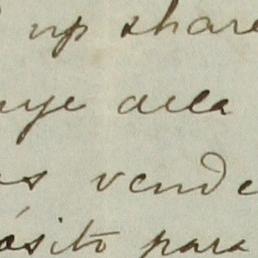 up share
aye aella
es vende
ósito para